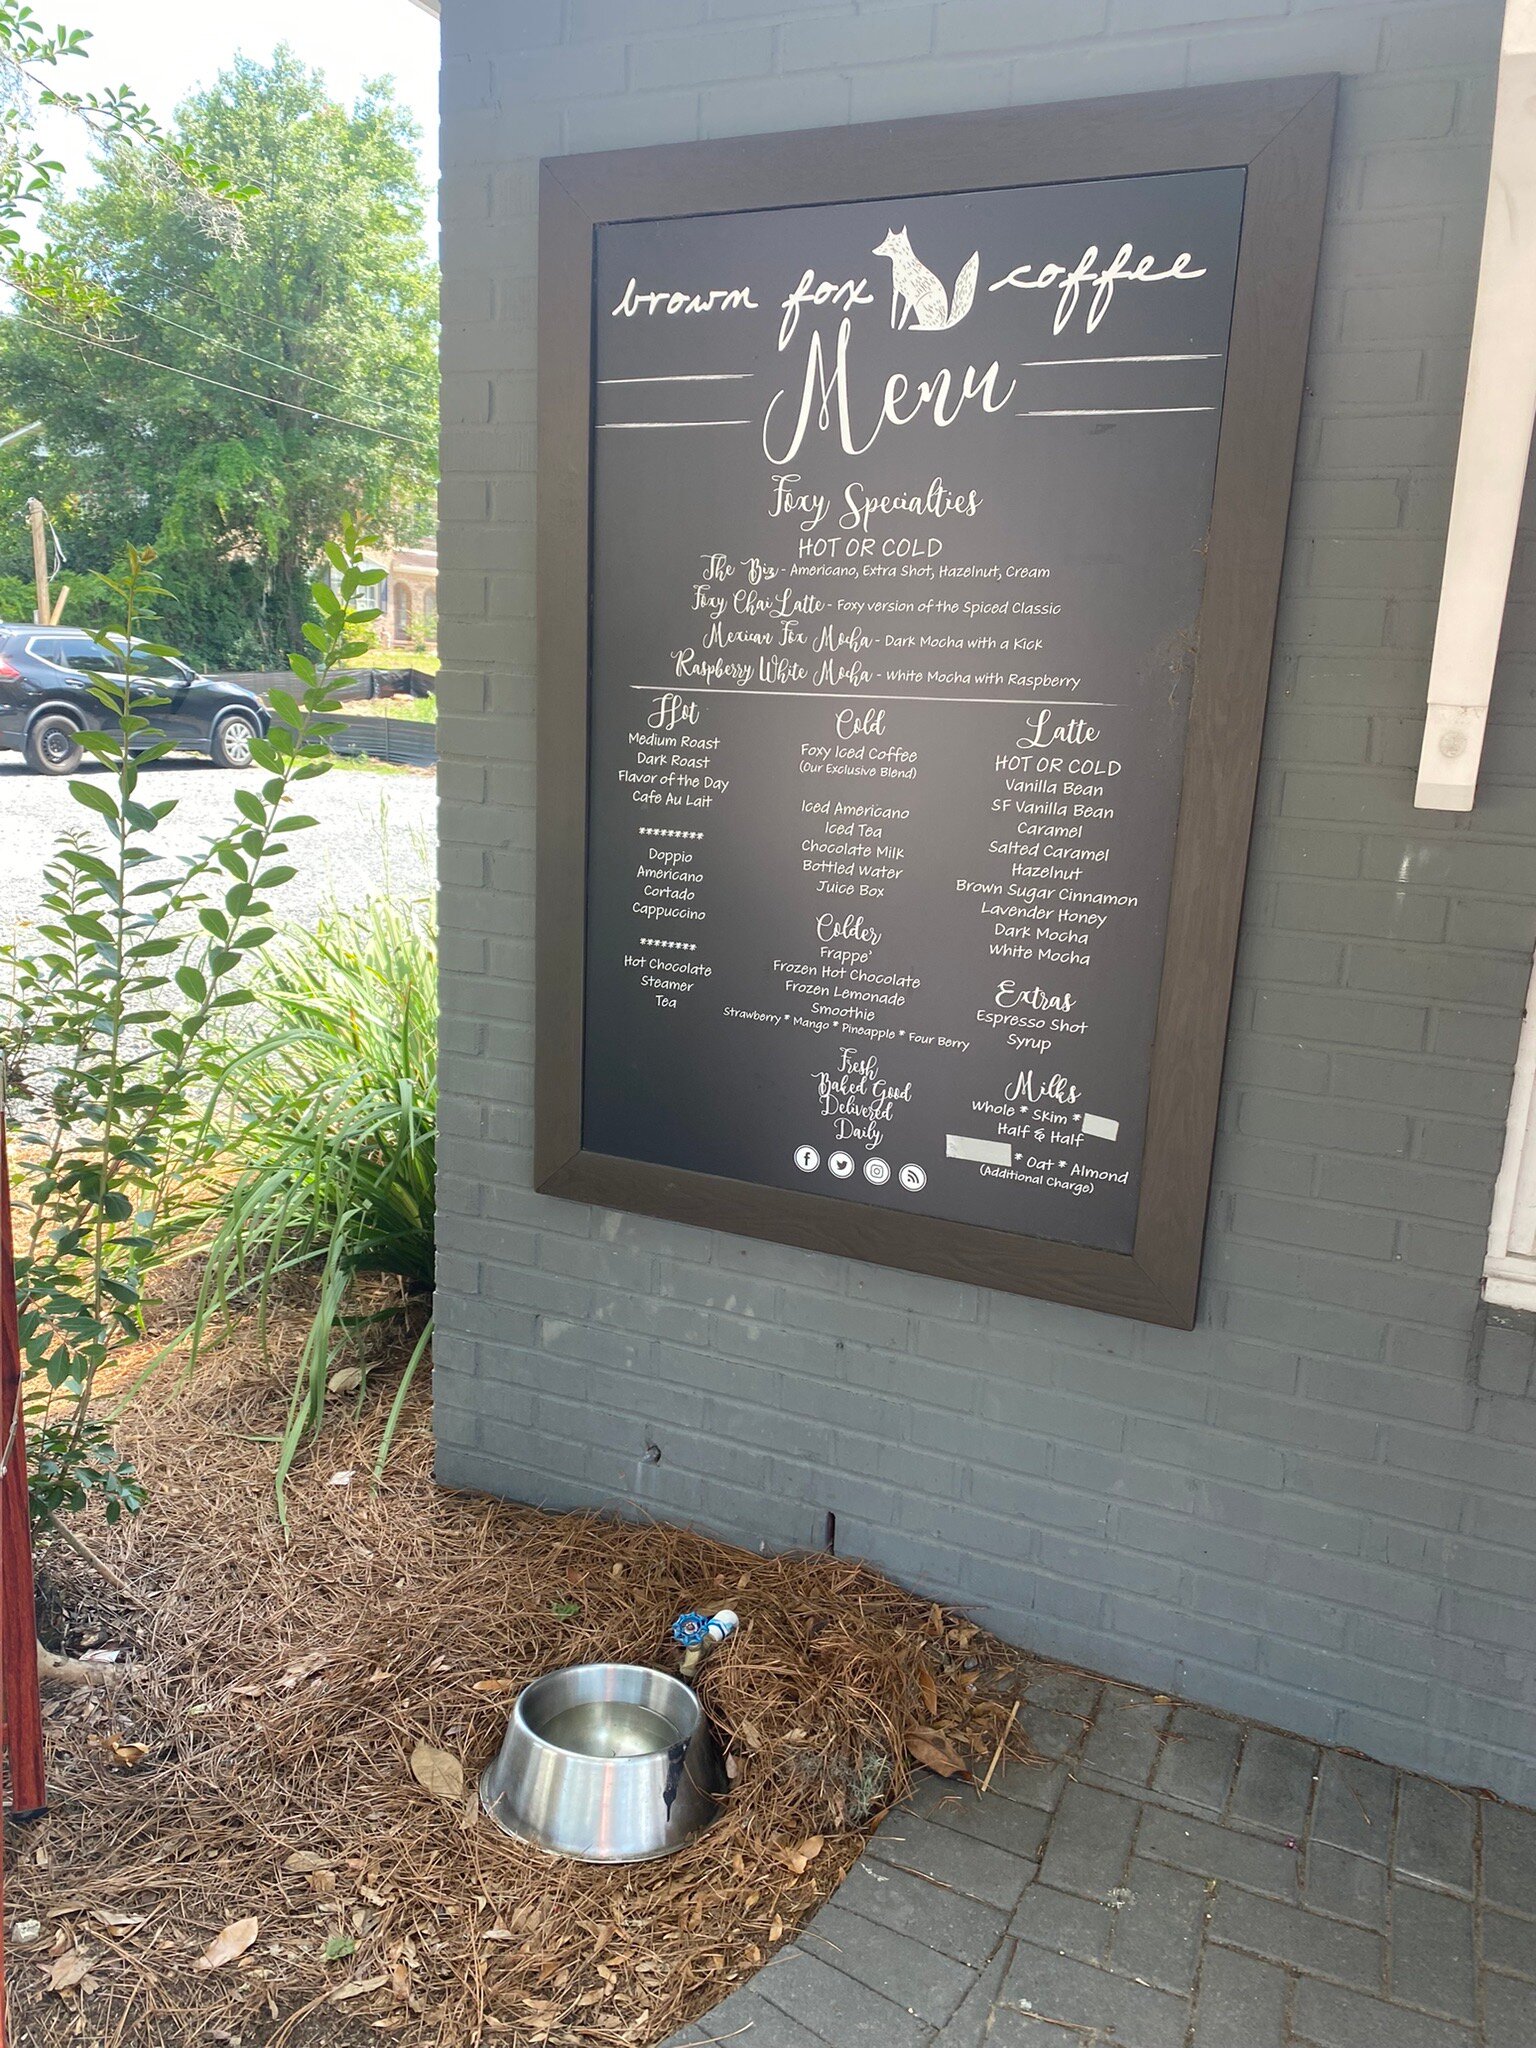 brown fox coffee
Menu
Foxy Specialties
HOT OR COLD
The Biz - Americano, Extra Shot, Hazelnut, Cream
Foxy Chai Latte - Foxy version of the Spiced Classic
Mexican Fox Mocha - Dark Mocha with a Kick
Raspberry White Mocha - White Mocha with Raspberry
Hot
Medium Roast
Dark Roast
Flavor of the Day
Cafe Au Lait
*********
Doppio
Americano
Cortado
Cappuccino
********
Hot Chocolate
Steamer
Tea
Cold
Foxy Iced Coffee
(Our Exclusive Blend)
Iced Americano
Iced Tea
Chocolate Milk
Bottled Water
Juice Box
Colder
Frappe'
Frozen Hot Chocolate
Frozen Lemonade
Smoothie
Strawberry * Mango * Pineapple * Four Berry
Fresh
Baked Good
Delivered
Daily
Latte
HOT OR COLD
Vanilla Bean
SF Vanilla Bean
Caramel
Salted Caramel
Hazelnut
Brown Sugar Cinnamon
Lavender Honey
Dark Mocha
White Mocha
Extras
Espresso Shot
Syrup
Milks
Whole * Skim *
Half & Half
* Oat * Almond
(Additional Charge)